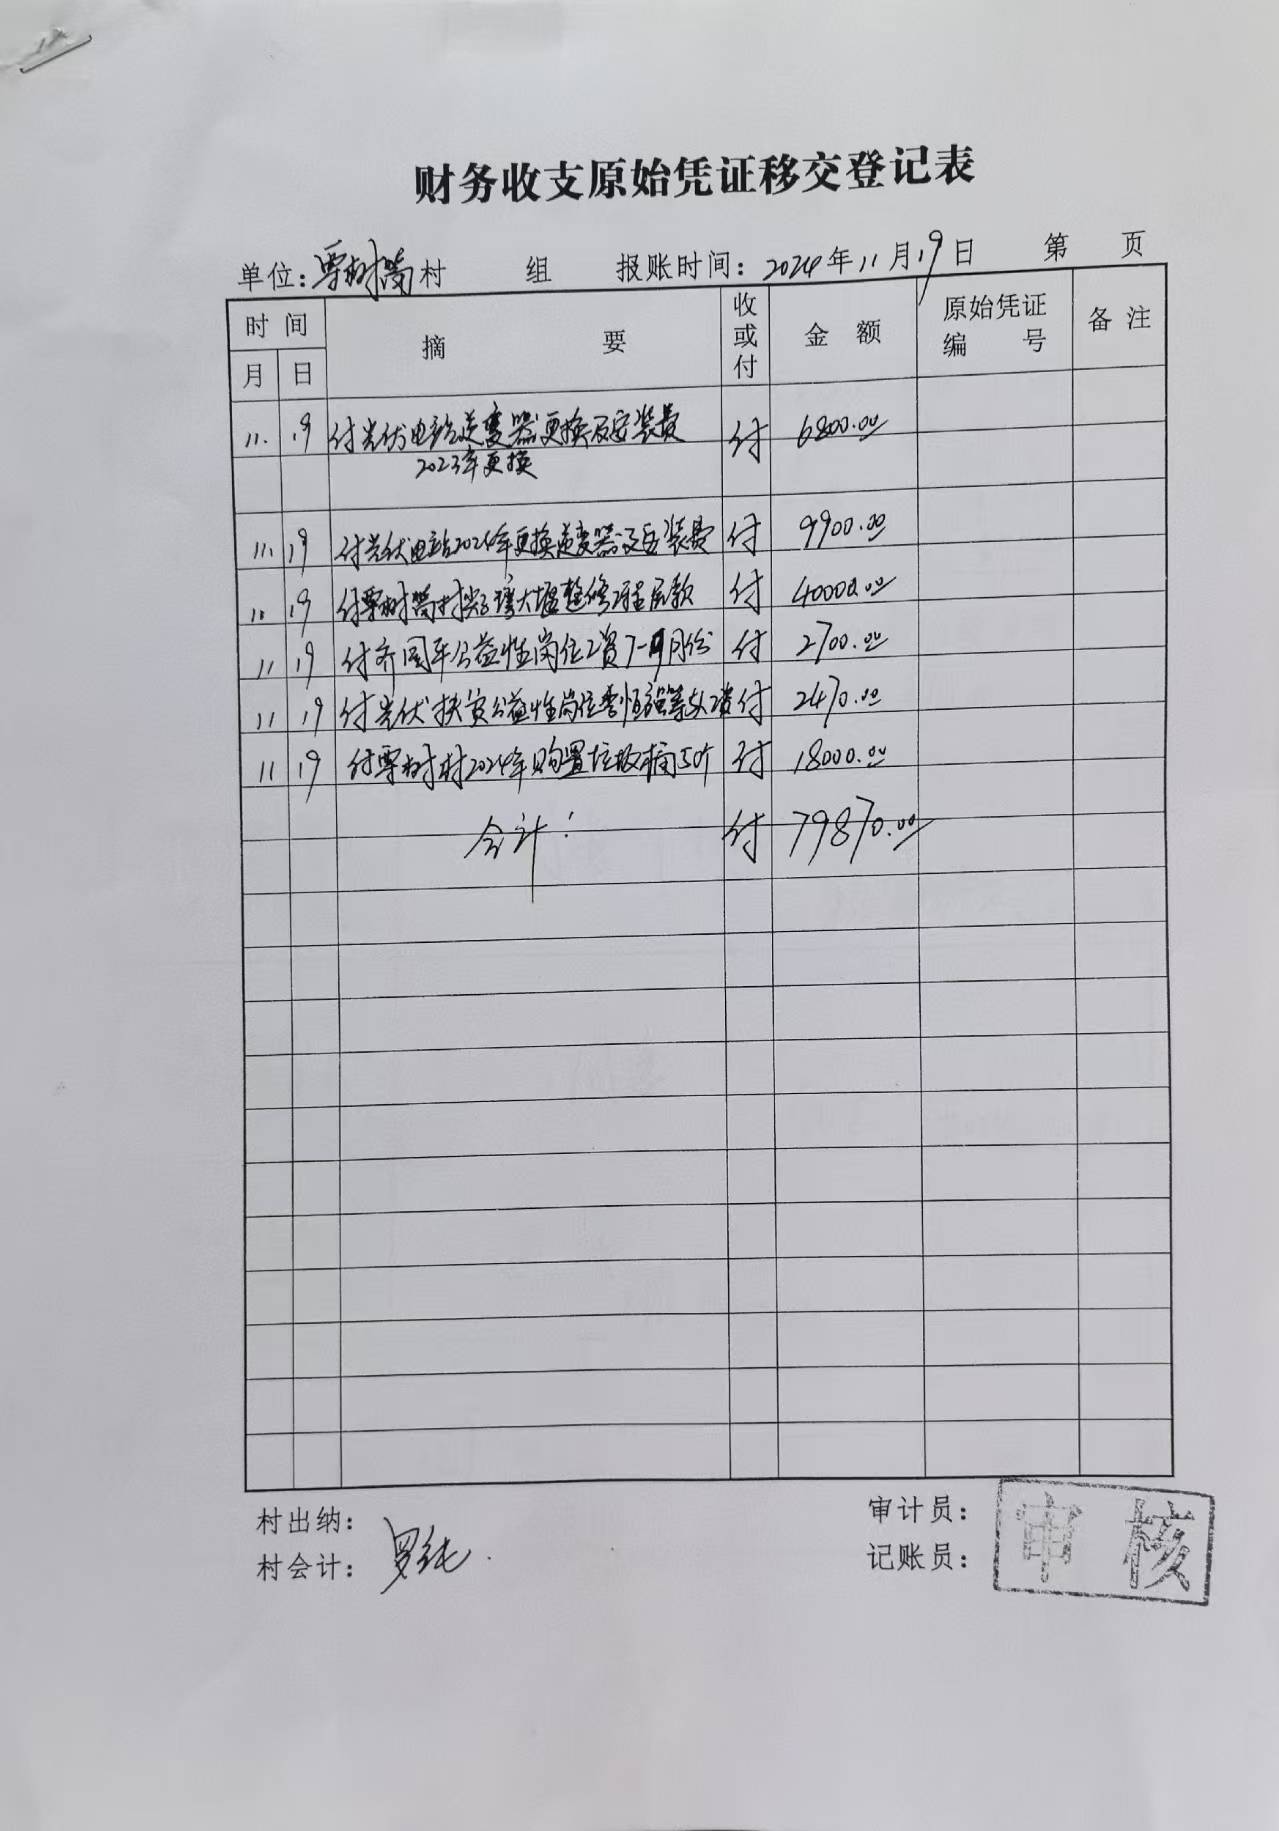 财务收支原始凭证移交登记表
单位:栗树筒村 组 报账时间: 2024年11月19日 第 页
时间 摘要 收或付 金额 原始凭证编号 备注
月 日
11. 19 付光伏电站逆变器更换及安装费 付 6800.00
2023年更换
11. 19 付光伏电站2024年更换逆变器及安装费 付 9900.00
11 19 付栗树筒村大堰整修工程尾款 付 40000.00
11 19 付齐国平公益性岗位工资7-9月份 付 2700.00
11 19 付光伏扶贫公益性岗位李恒强等 付 2470.00
11 19 付栗树村2024年购置垃圾桶50个 付 18000.00
合计: 付 79870.00
村出纳: 审计员:
村会计: 罗纯 记账员:
审核